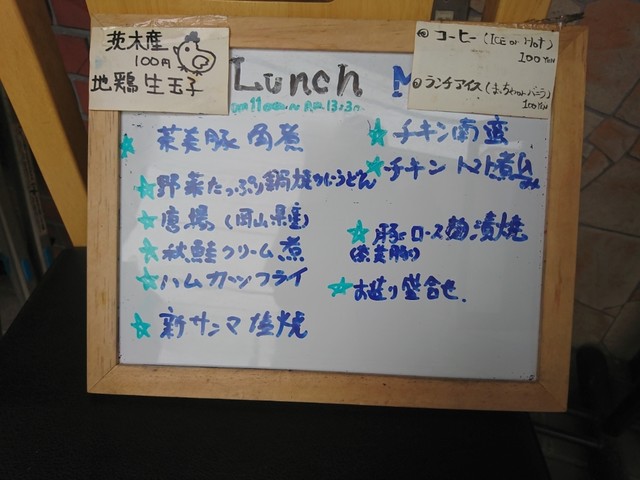 茨木産
100円
地鶏生玉子
コーヒー(ICE or Hot)
100YEN
ランチアイス
100YEN
Lunch M
茶美豚角煮
野菜たっぷり鍋焼うどん
唐揚(岡山県産)
秋鮭クリーム煮
ハムカツフライ
新サンマ塩焼
チキン南蛮
チキントマト煮込み
豚ロース
(茶美豚)
お造り盛合せ